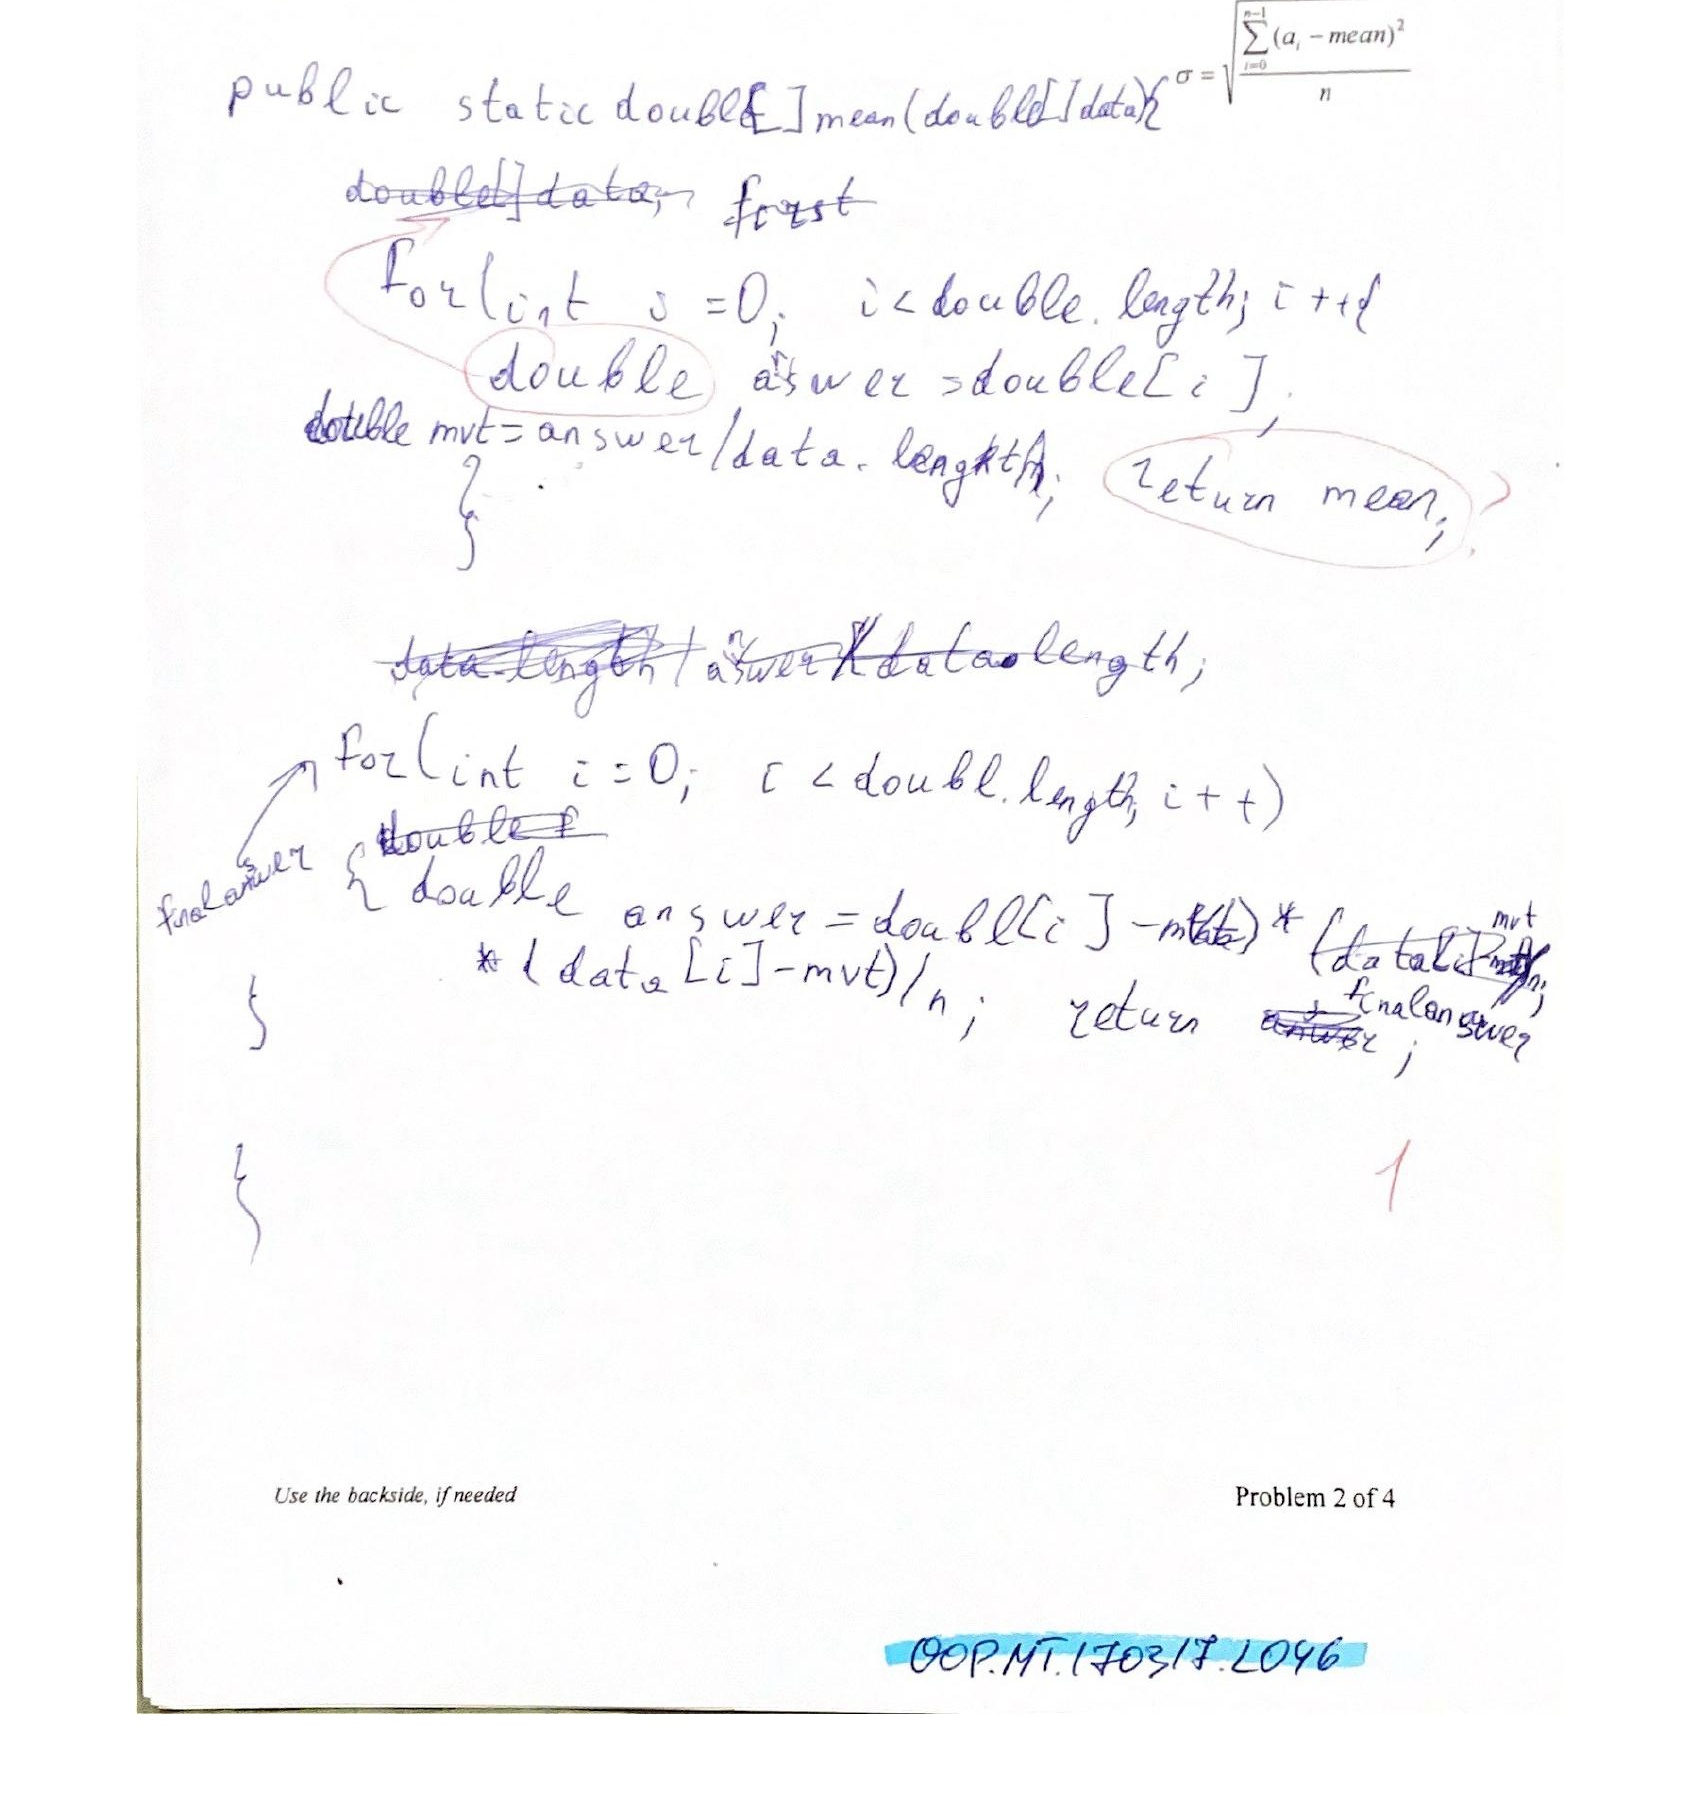 σ = √ n-1 ∑ i=0 (a_i − mean)² / n
public static double[] mean(double[] data){
double[] data; first
for(int i =0; i<double.length; i++{
double answer =double[i];
double mvt=answer/data.length; return mean; ?
}
}
data.length / answer/data.length;
for(int i=0; i<doubl.length; i++)
{ double f
finalanswer
double answer=doubl[i]-mvt) * (data[i]-mvt
*(data[i]-mvt)/n; return finalanswer;
}
}
1
Use the backside, if needed
Problem 2 of 4
OOP.MT.170317.L046